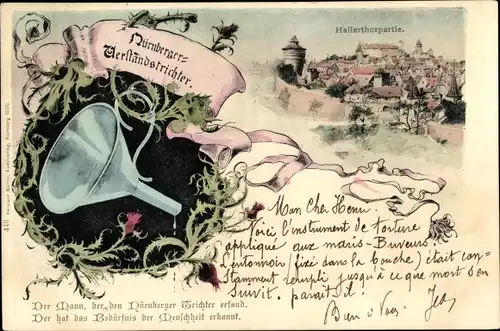 Nürnberger-
Verstandstrichter.
Hallerthorpartie.
Mon Cher Henri.
Voici l'instrument de torture
appliqué aux mais-Buveurs.
L'entonnoir (fixé dans la bouche) était con-
stamment rempli jusqu'à ce que mort s'en
suivit. paraît-il!
Bien à Vous
Der Mann, der den Nürnberger Trichter erfand.
Der hat das Bedürfnis der Menschheit erkannt.
416